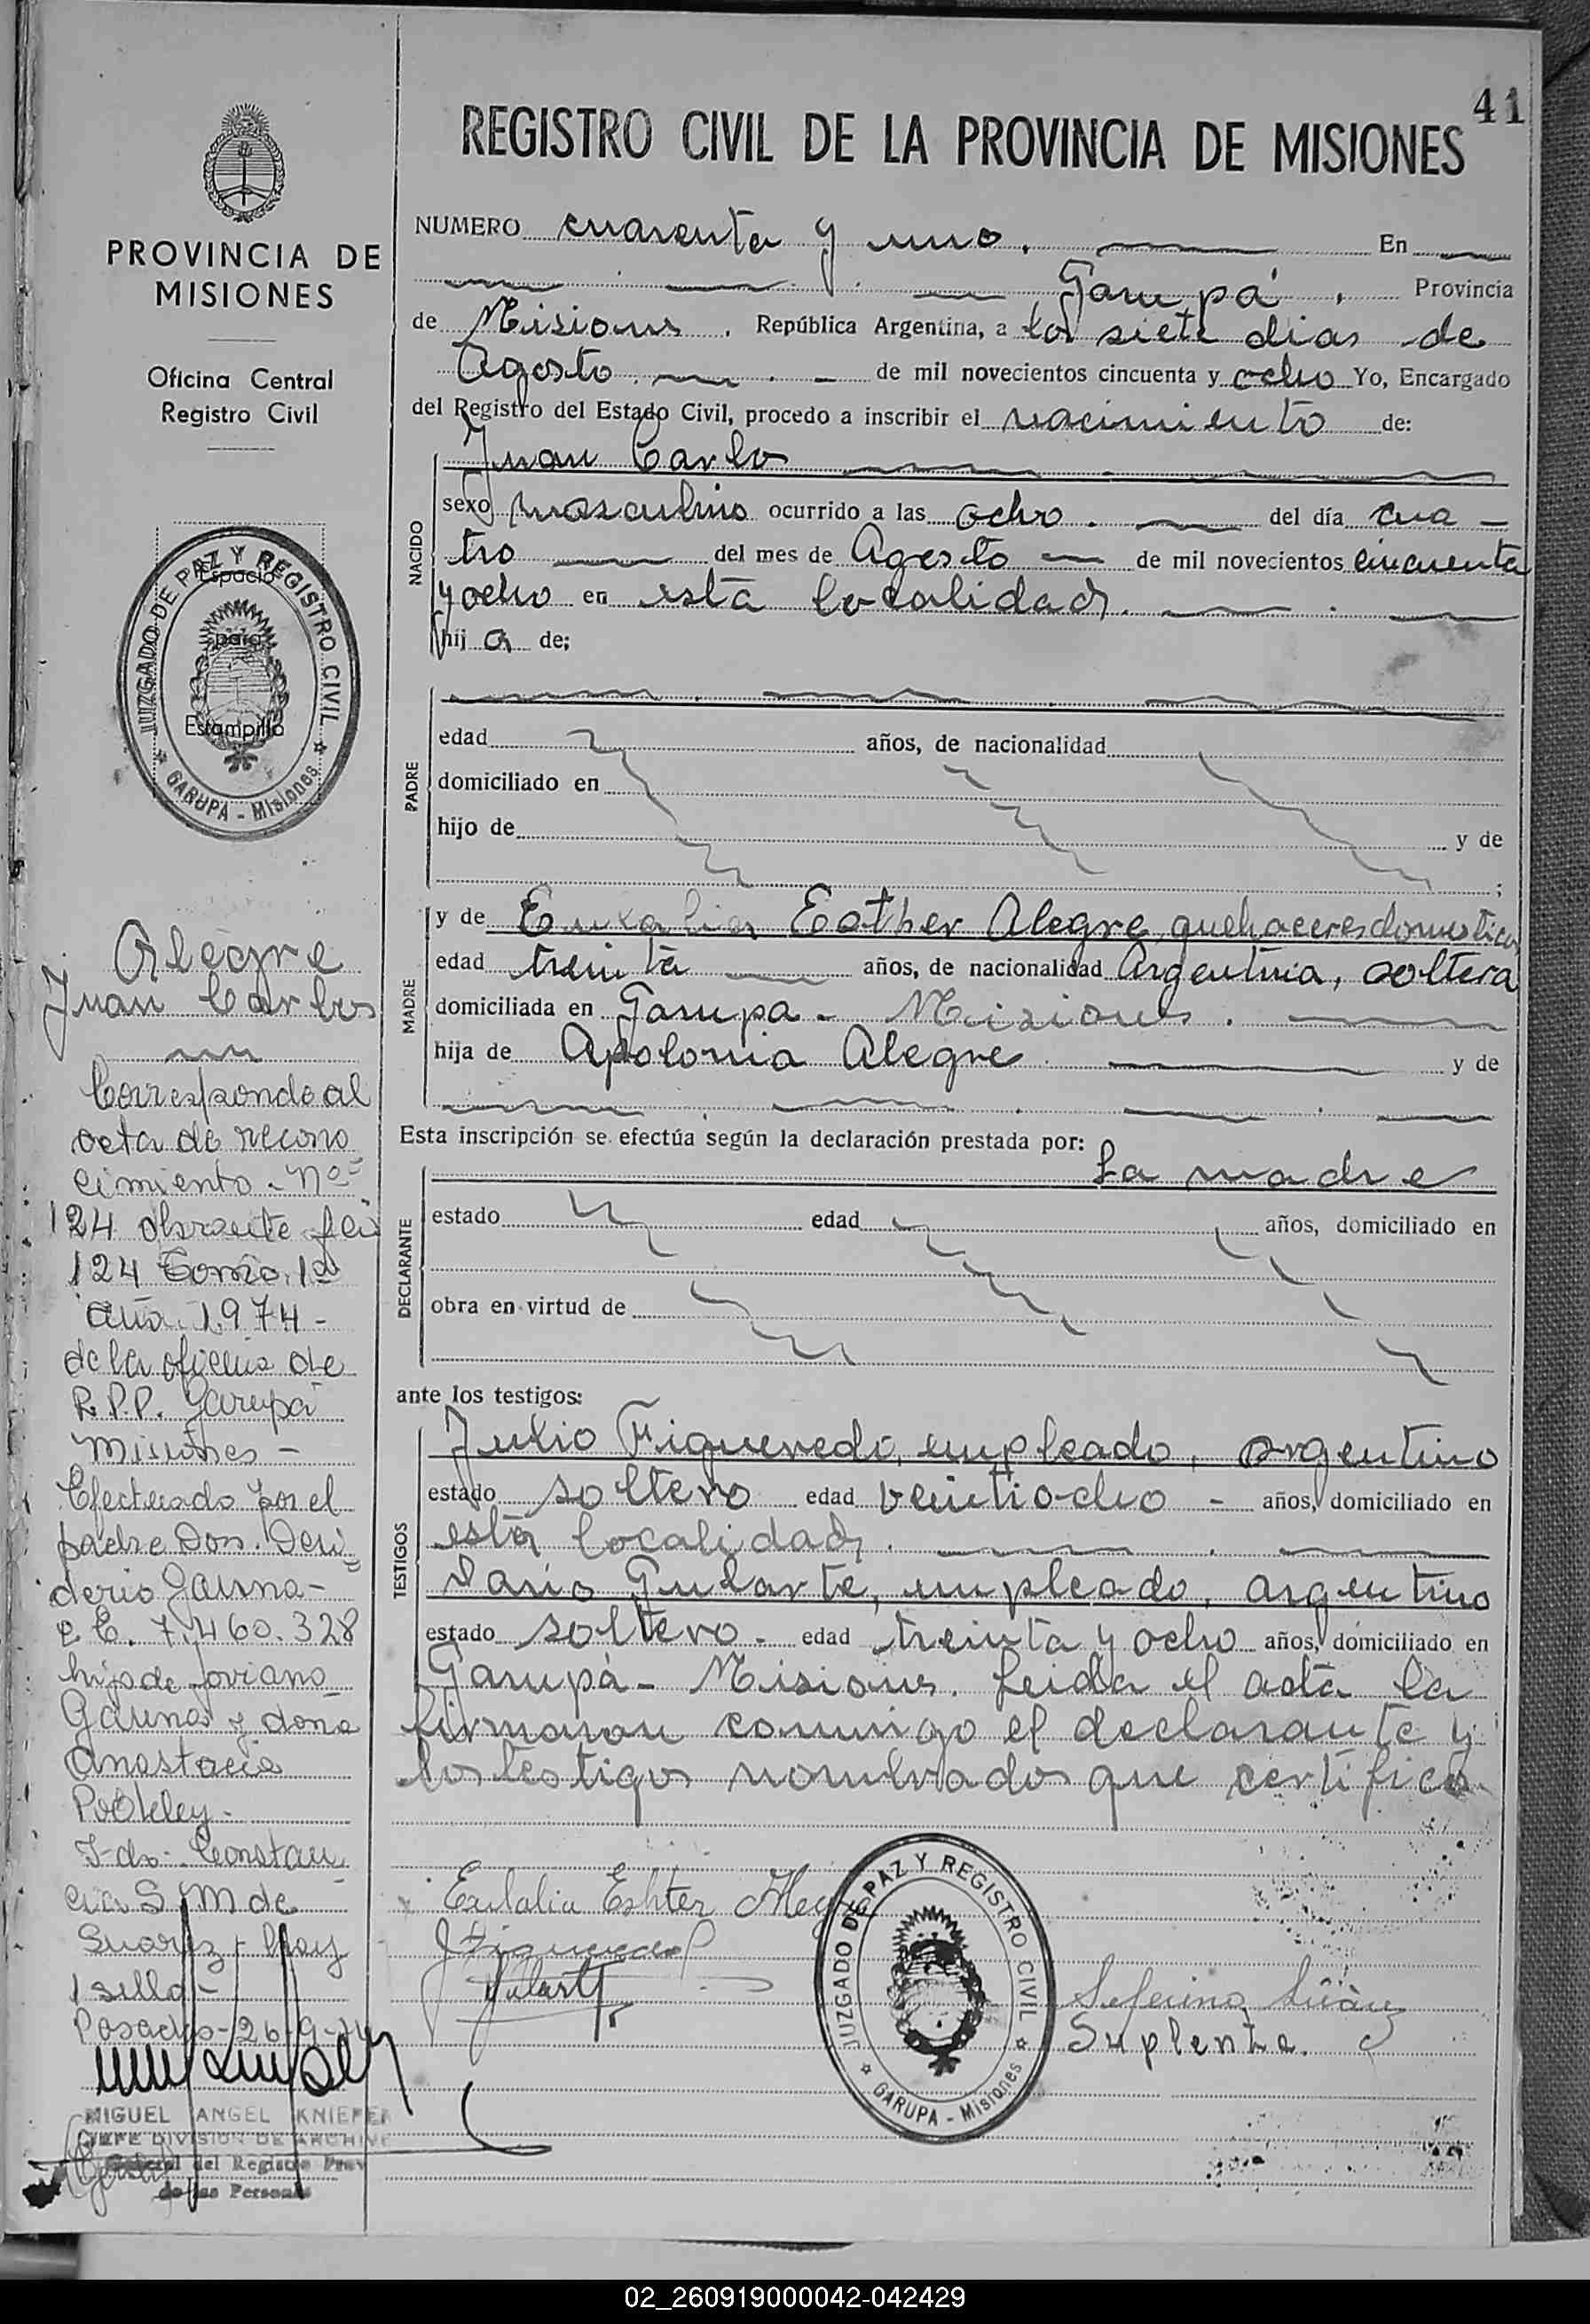 41
REGISTRO CIVIL DE LA PROVINCIA DE MISIONES
PROVINCIA DE
MISIONES
Oficina Central
Registro Civil
JUZGADO DE PAZ Y REGISTRO CIVIL
Espacio
para
Estampilla
GARUPA - Misiones
Alegre
Juan Carlos
Corresponde al
acta de recono
cimiento - Nº
124 obrante
124 Tomo 1º
Año 1974 -
de la oficina de
R.P.P. Garupá
Misiones -
Efectuado por el
padre Don. Desi
derio Gauna -
7.460.328
hijo de Joviano
Gauna y doña
Anastacia
Constan
cia S/M de
Suarez - hay
1 sello -
Posadas - 26-9-74
MIGUEL ANGEL KNIEFER
JEFE DIVISION DE ARCHIVO
General del Registro Prov
de las Personas
NUMERO cuarenta y uno. En
Garupá. Provincia
de Misiones. República Argentina, a los siete dias de
Agosto. de mil novecientos cincuenta y ocho Yo, Encargado
del Registro del Estado Civil, procedo a inscribir el nacimiento de:
NACIDO
Juan Carlo
sexo masculino ocurrido a las ocho. del día cua -
tro del mes de Agosto de mil novecientos cincuenta
y ocho en está localidad.
hij o de;
PADRE
edad años, de nacionalidad
domiciliado en
hijo de y de
;
MADRE
y de Eulalia Esther Alegre, quehaceres domesticos
edad treinta años, de nacionalidad Argentina, soltera
domiciliada en Garupa - Misiones.
hija de Apolonia Alegre. y de
Esta inscripción se efectúa según la declaración prestada por:
La madre
DECLARANTE
estado edad años, domiciliado en
obra en virtud de
ante los testigos:
TESTIGOS
Julio Figueredo, empleado, argentino
estado soltero edad veintiocho - años, domiciliado en
está localidad.
Dario Gularte, empleado, argentino
estado soltero - edad treinta y ocho años, domiciliado en
Garupá - Misiones. Leida el acta la
firmaron conmigo el declarante y
los testigos nombrados que certifico
Eulalia Eshter Alegre
J Figueredo
Gularte
JUZGADO DE PAZ Y REGISTRO CIVIL
GARUPA - Misiones
Suplente.
02_260919000042-042429